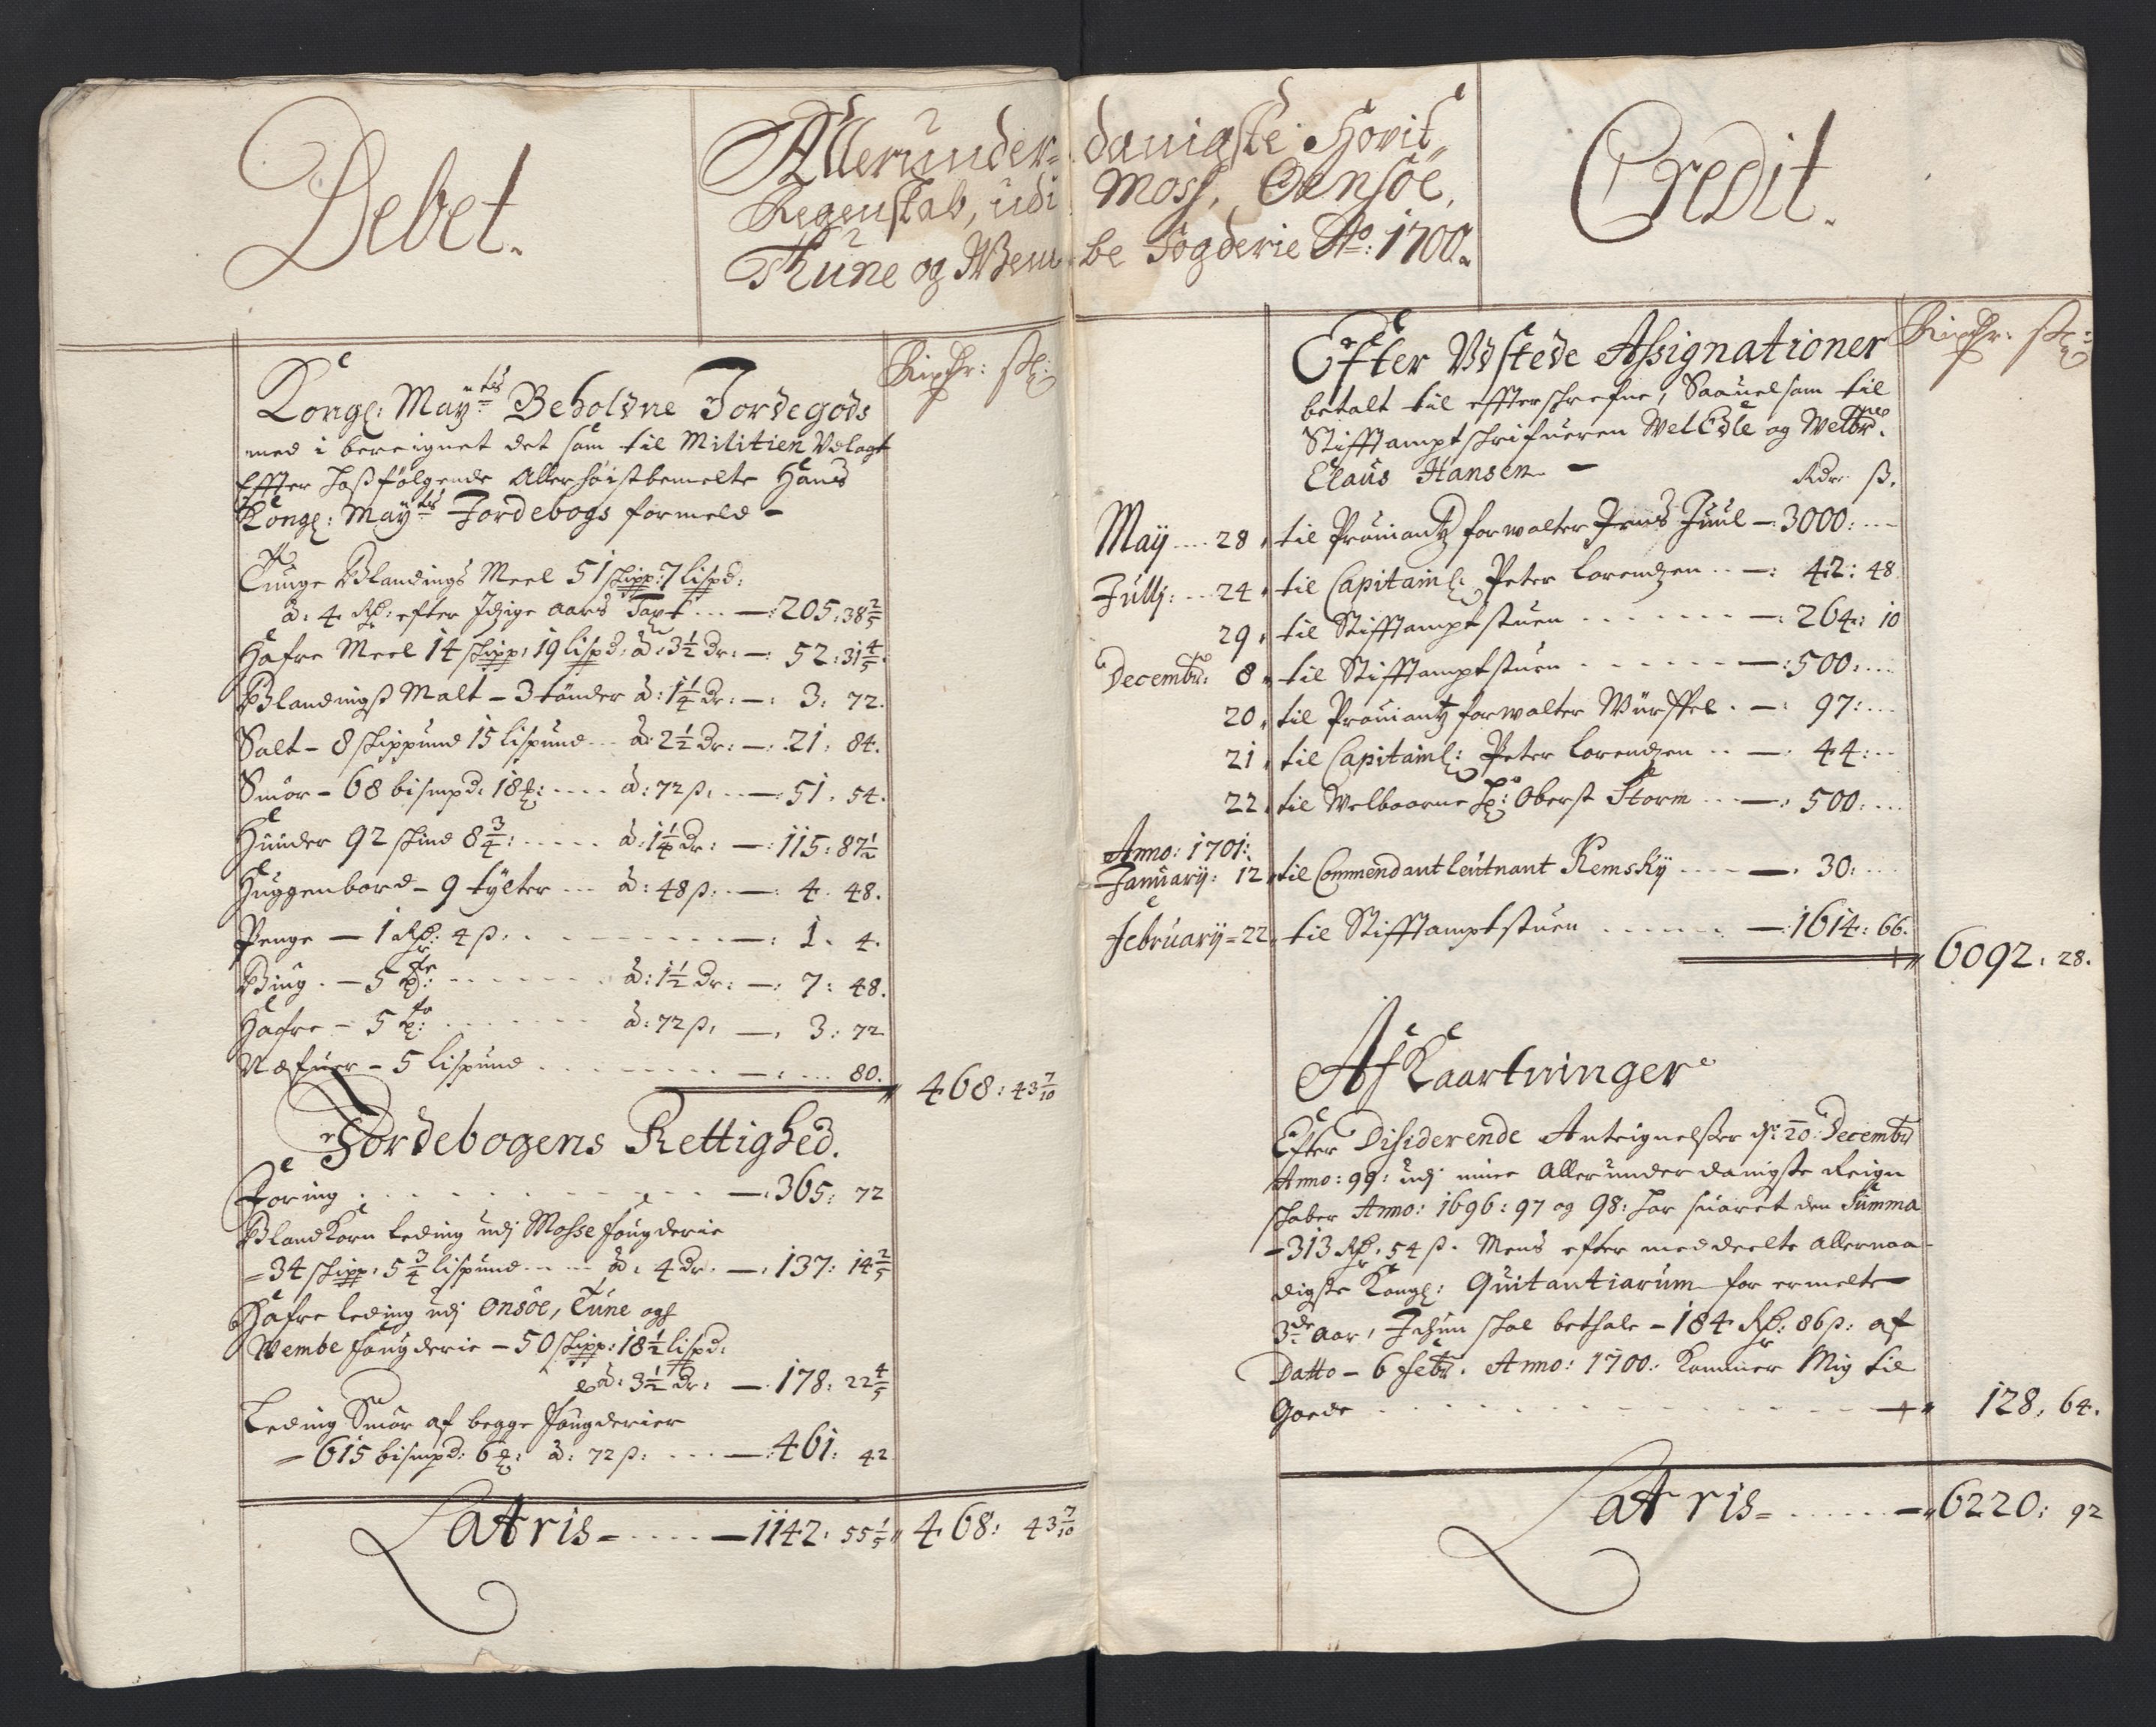 Debet.
Allerunder=danigste Hovit
Regenskab, udi Moss, Onsöe,
Thune og Wembe Fogderie Ao: 1700.
Credit.
Rixdr: sk:
Kongl: Mayts Beholdne Jordegods
med i bereignet det som til Militien Udlagt
Effter hoßfölgende Allerhöistbemelte Hans
Kongl: Mayts Jordebogs formeld -
Tunge Blandings Meel 51 skipp: 7 lispd:
à: 4 Rdr: efter Idzige aars Taxt ... —: 205: 38 2/5
Hafre Meel 14 skipp: 19 lispd: à: 3 1/2 dr: —: 52: 31 4/5.
Blandingß Malt - 3 tönder à: 1 1/4 dr: —: 3: 72.
Salt - 8 skippund 15 lispund ... à: 2 1/2 dr: —: 21: 84.
Smör - 68 bismpd: 18 ℔: .... à: 72 ß: ... —: 51: 54.
Huuder 92 skind 8 3/4: ..... à: 1 1/4 dr: —: 115: 87 1/2
Huggenbord - 9 tylter ... à: 48 ß: .. —: 4. 48.
Penge — 1 Rdr: 4 ß: . . —: 1. 4.
Biug. — 5 ... à: 1 1/2 dr: —: 7: 48.
Hafre - 5 ... à: 72 ß: —: 3: 72
Næfuer - 5 lispund ... —: ... 80.
468: 43 7/10
Jordebogens Rettighed.
Foring . . . —: 365: 72
Bland Korn leding udj Mosse fougderie
= 34 skipp: 5 3/4 lispund ... à: 4 dr. —: 137: 14 2/5
Hafre leding udj Onsöe, Tune ogs
Wembe fougderie - 50 skipp: 18 1/2 lispd:
à: 3 1/2 dr: —: 178: 22 4/5
Leding Smör af begge fougderier
= 615 bismpd: 6 ℔: à: 72 ß: ... —: 461: 42
Latris - .... — 1142: 55 1/5 468: 43 7/10
Rixdr: sk:
Efter Udstede Assignationer
betalt til effterskrefne, Saauelsom til
Stifftamptskrifueren WelEdle og Welbr.
Claus Hansen - Rdr. ß.
Maij .... 28. til Prouiantzforwalter Jens Juul —: 3000: ...
Julij: ... 24. til Capitainl: Peter Lorendzen .. —: 42: 48
29. til Stifftamptstuen . . . —: 264: 10
Decembr: 8. til Stifftamptstuen . . . —: 500: ...
20. til Prouiantzforwalter Würffel . —: 97: ...
21. til Capitainl: Peter Lorendzen .. —: 44: ..
22. til Welbaarne Hr: Oberst Storm ... —: 500: ...
Anno: 1701:
Januarij: 12. til Commendantleutnant Remsky .... —. 30: ...
Februarij = 22. til Stifftamptstuen . . . —: 1614: 66.
6092. 28.
Af Kaartninger
Efter Disiderende Anteignelßer de: 20: Decembr
Anno: 99: udj mine Allerunderdanigste Reign
skaber Anno: 1696: 97 og 98: har suaret den Summa
- 313 Rdr: 54 ß. Mens efter meddeelte Allernaa-
digste Kongl: Quitantiarum for ermelte
3de Aar, Ichun skal bethale - 184 Rdr: 86 ß: af
Datto - 6 febr. Anno: 1700: Kommer Mig til
Goede . . . 128. 64.
Latris - ...... — 6220: 92